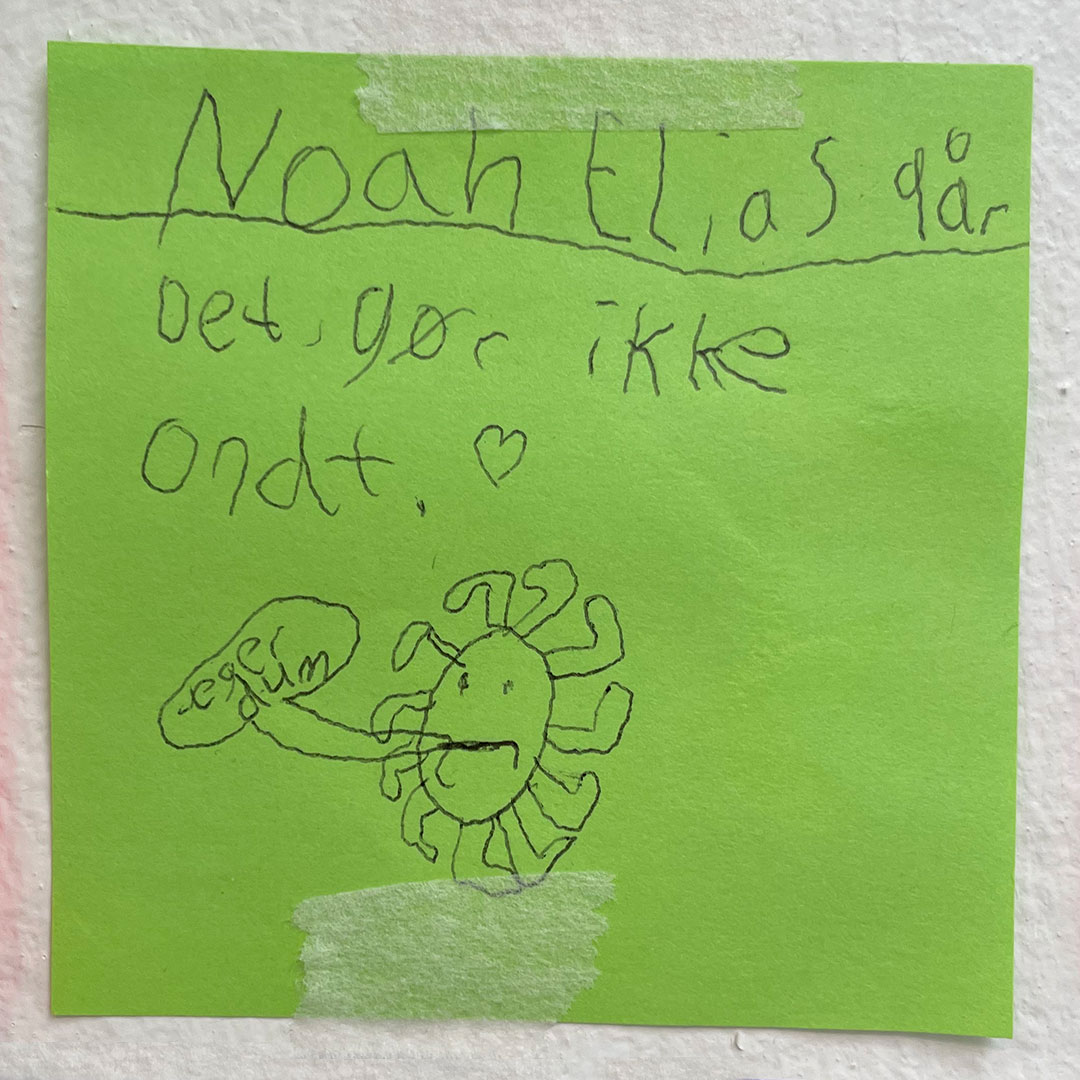 Noah Elias går
Det gør ikke
ondt. ♡
jeg er
dum